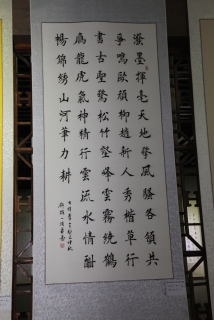 潑墨揮毫天地擎風騷各領共
爭鳴歐顏柳趙新人秀楷草行
書古聖驚松竹壑峰雲霧繞鶴
鷹龍虎氣神精行雲流水情酣
暢錦綉山河筆力耕